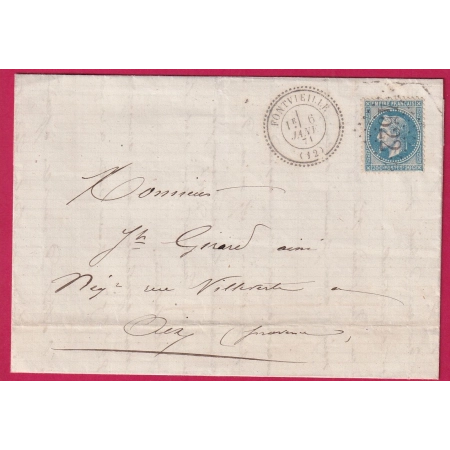 FONTVIEILLE
1E 6
JANV.
71
(12)
EMPIRE FRANÇAIS
522
Monsieur
Jh Girard ainé
Négt rue Villeverte a
Aix (provence)